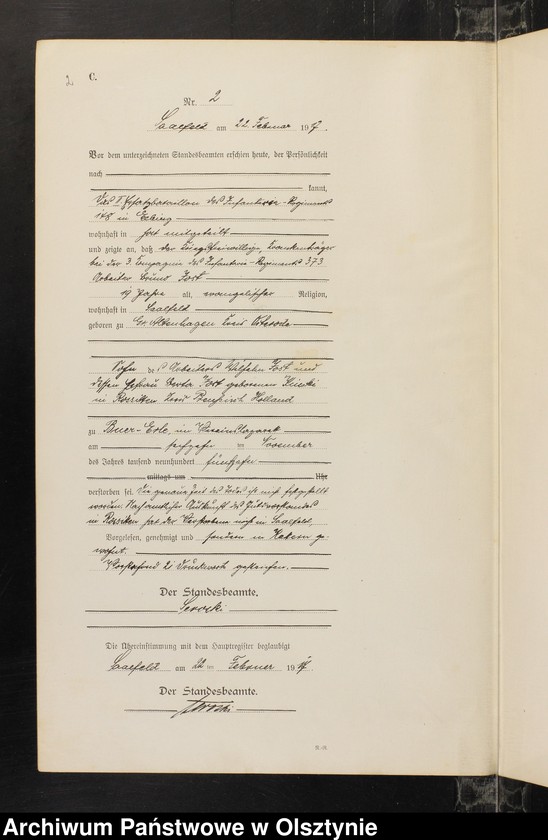 2
C.
Nr. 2
Saalfeld am 22. Februar 1917.
Vor dem unterzeichneten Standesbeamten erschien heute, der Persönlichkeit
nach
kannt,
Das I. Ersatzbataillon des Infanterie-Regiments
148 in Elbing
wohnhaft in hat mitgeteilt
und zeigte an, daß der Kriegsfreiwillige, Krankenträger
bei der 3. Kompagnie des Infanterie-Regiments 373
Arbeiter
19 Jahre alt, evangelischer Religion,
wohnhaft in Saalfeld
geboren zu Gr. Altenhagen Kreis Osterode
Sohn des Arbeiters Wilhelm und
dessen Ehefrau geborenen
in Kreis Preußisch Holland
zu Buer-Erle, im Vereinslazarett
am sechzehn ten November
des Jahres tausend neunhundert fünfzehn
mittags um Uhr
verstorben sei. Die genaue Zeit des Todes ist nicht festgestellt
worden. Nach amtlicher Auskunft des Gutsvorstandes
in hat der Verstorbene nicht in Saalfeld,
Vorgelesen, genehmigt und sondern in ge-
wohnt.
Vorstehend 21 Druckworte gestrichen.
Der Standesbeamte.
Die Übereinstimmung mit dem Hauptregister beglaubigt
Saalfeld am 22 ten Februar 1917.
Der Standesbeamte.
Archiwum Państwowe w Olsztynie